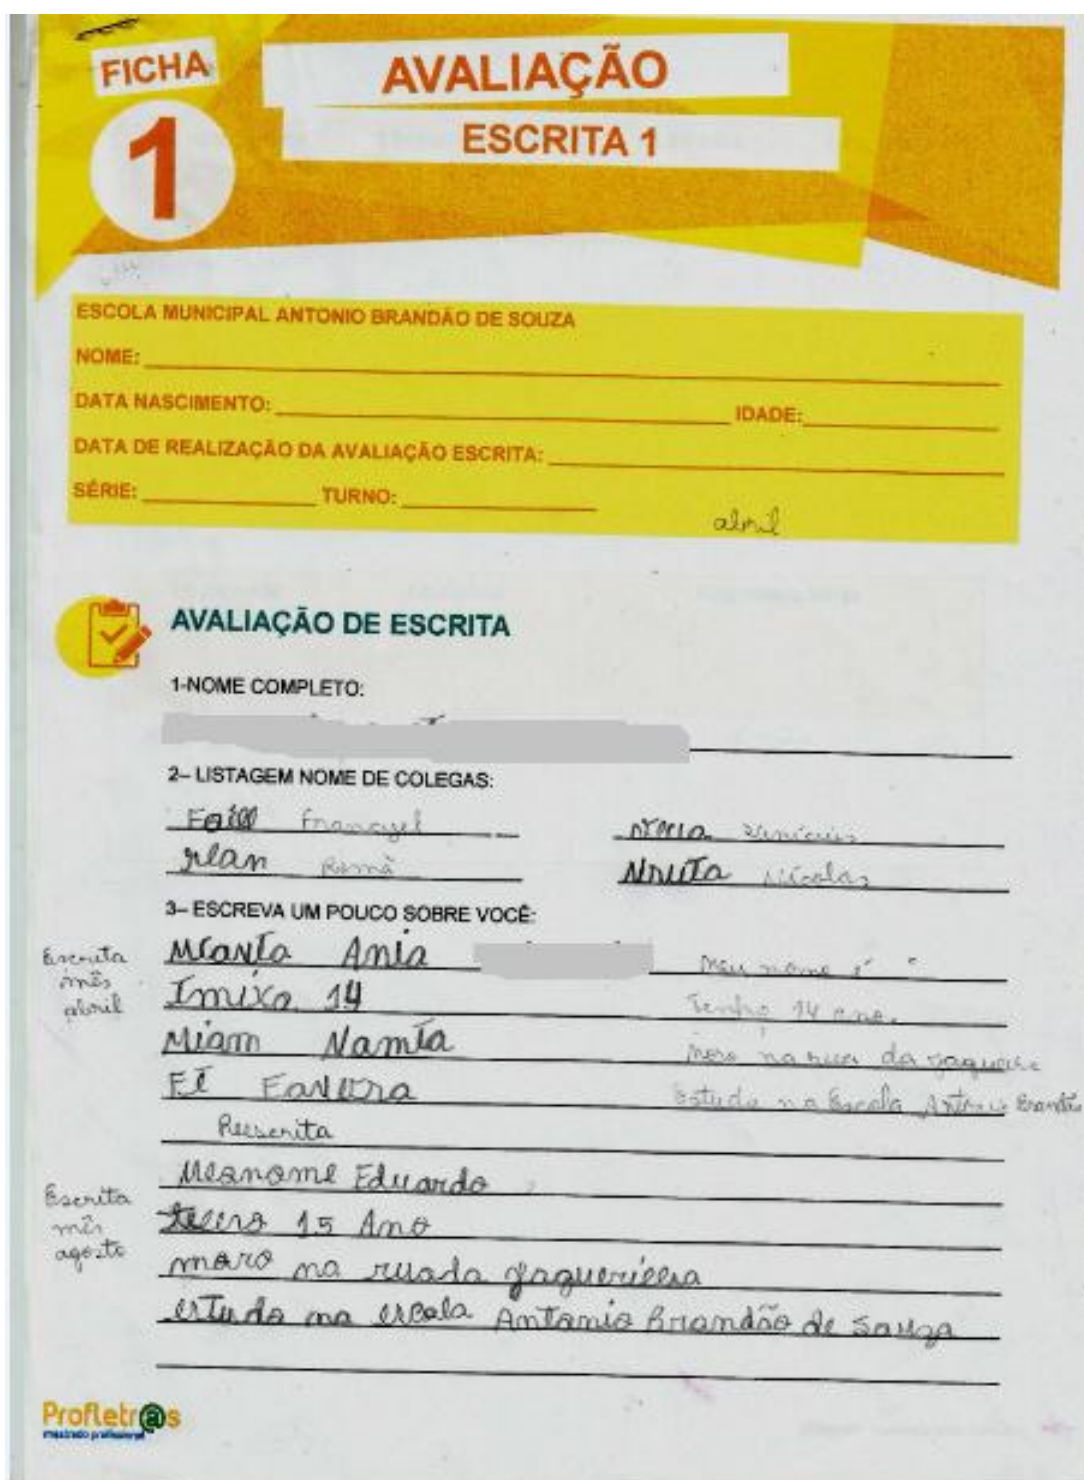 FICHA
1
AVALIAÇÃO
ESCRITA 1
ESCOLA MUNICIPAL ANTONIO BRANDÃO DE SOUZA
NOME:
DATA NASCIMENTO: IDADE:
DATA DE REALIZAÇÃO DA AVALIAÇÃO ESCRITA:
SÉRIE: TURNO:
abril
AVALIAÇÃO DE ESCRITA
1-NOME COMPLETO:
2– LISTAGEM NOME DE COLEGAS:
Francyel Vinícius
rlan Romã Nruta Nícolas
3– ESCREVA UM POUCO SOBRE VOCÊ:
Escrita mês abril
Ania Meu nome é
Imixa 14 Tenho 14 ano.
Miam Namta Moro na rua da
Estudo na Escola Antonio Brandão
Reescrita
Escrita mês agosto
Meanome Eduardo
15 Ano
moro na ruada
estudo na escola Antonio Brandão de Souza
Profletr@s
mestrado profissional